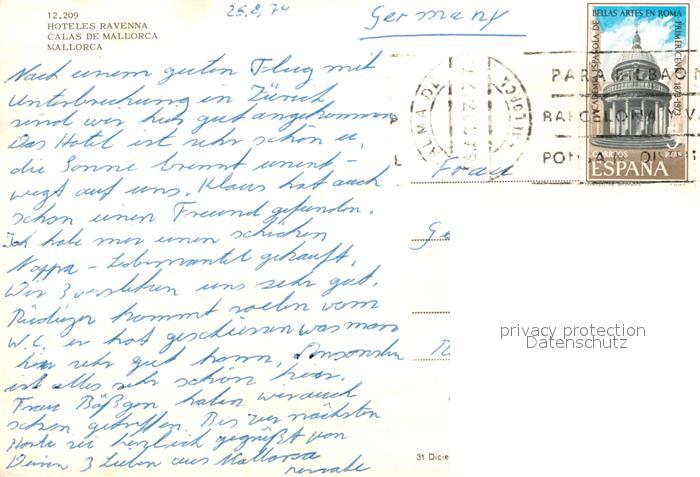 12.209
HOTELES RAVENNA
CALAS DE MALLORCA
MALLORCA
26.8.74
Germany
Nach einem guten Flug mit
Unterbrechung in Zürich
sind wir hier gut angekommen.
Das Hotel ist sehr schön u.
die Sonne brennt unent-
wegt auf uns. Klaus hat auch
schon einen Freund gefunden.
Ich habe mir einen schicken
Nappa-Ledermantel gekauft.
Wir 3 verstehen uns sehr gut.
kommt soeben vom
W.C. er hat geschieren was man
hier sehr gut kann. Ansonsten
ist alles sehr schön hier.
Frau Bäßgen haben wir auch
schon getroffen. Bis zur nächsten
Karte sei herzlich gegrüßt von
Deinen 3 Lieben aus Mallorca
Frau
Ge
BELLAS ARTES EN ROMA
ACADEMIA ESPAÑOLA DE
PRIMER CENT. 1873-1973
5
PTAS
CORREOS
ESPAÑA
PALMA DE MALLORCA
PARA BILBAO
BARCELONA Y VA
PONGA DI
31 Dicie
privacy protection
Datenschutz